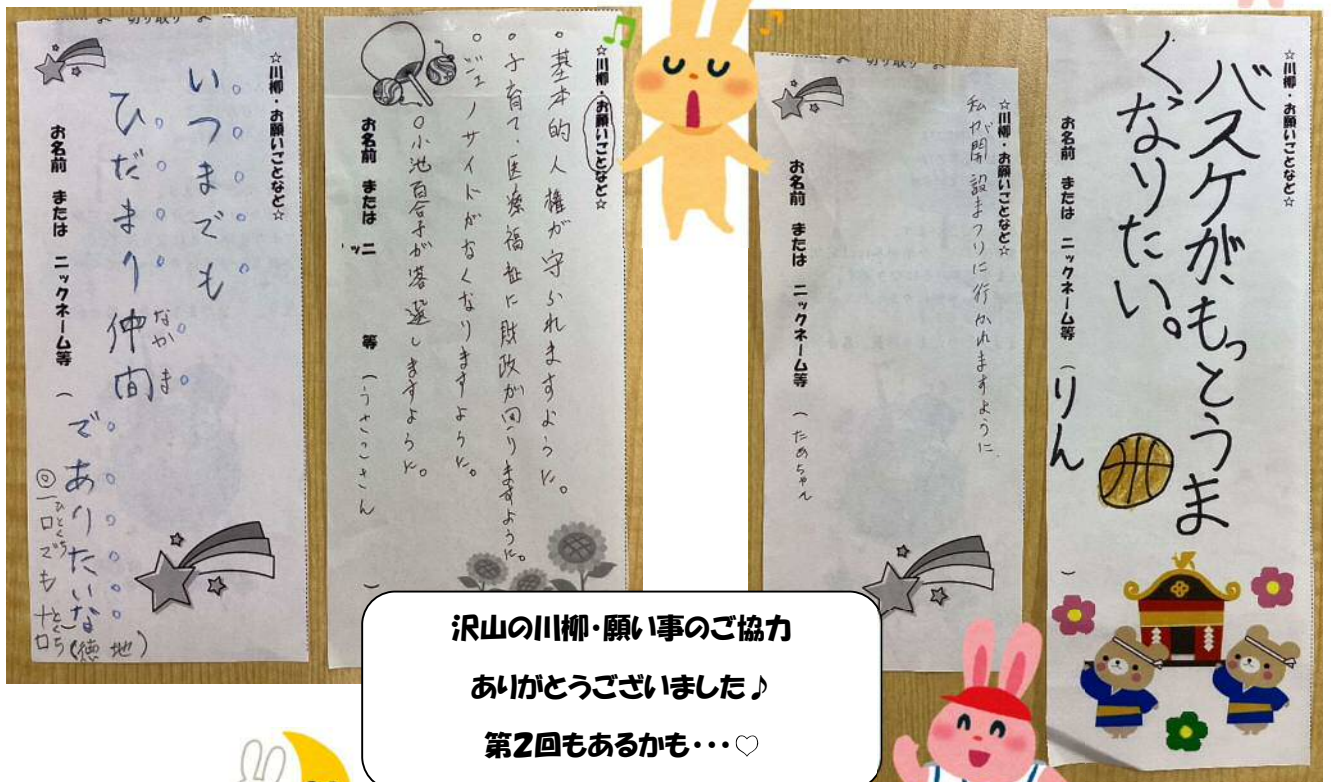 切り取り
☆川柳・お願いごとなど☆
いつまでも
ひだまり仲間
なかま
でありたいな
お名前 または ニックネーム等 (
◎一口でも十口(徳地)
ひとくち とくち
☆川柳・お願いごとなど☆
。基本的人権が守られますように。
。子育て、医療福祉に財政が回りますように。
。ジェノサイドがなくなりますように。
○小池百合子が落選しますように。
お名前 または ニッ 等 (うさっこさん )
切り取り
☆川柳・お願いごとなど☆
私が開設まつりに行かれますように.
お名前 または ニックネーム等 (ためちゃん
☆川柳・お願いごとなど☆
バスケが、もっとうま
くなりたい。
お名前 または ニックネーム等 (りん )
沢山の川柳・願い事のご協力
ありがとうございました♪
第2回もあるかも・・・♡